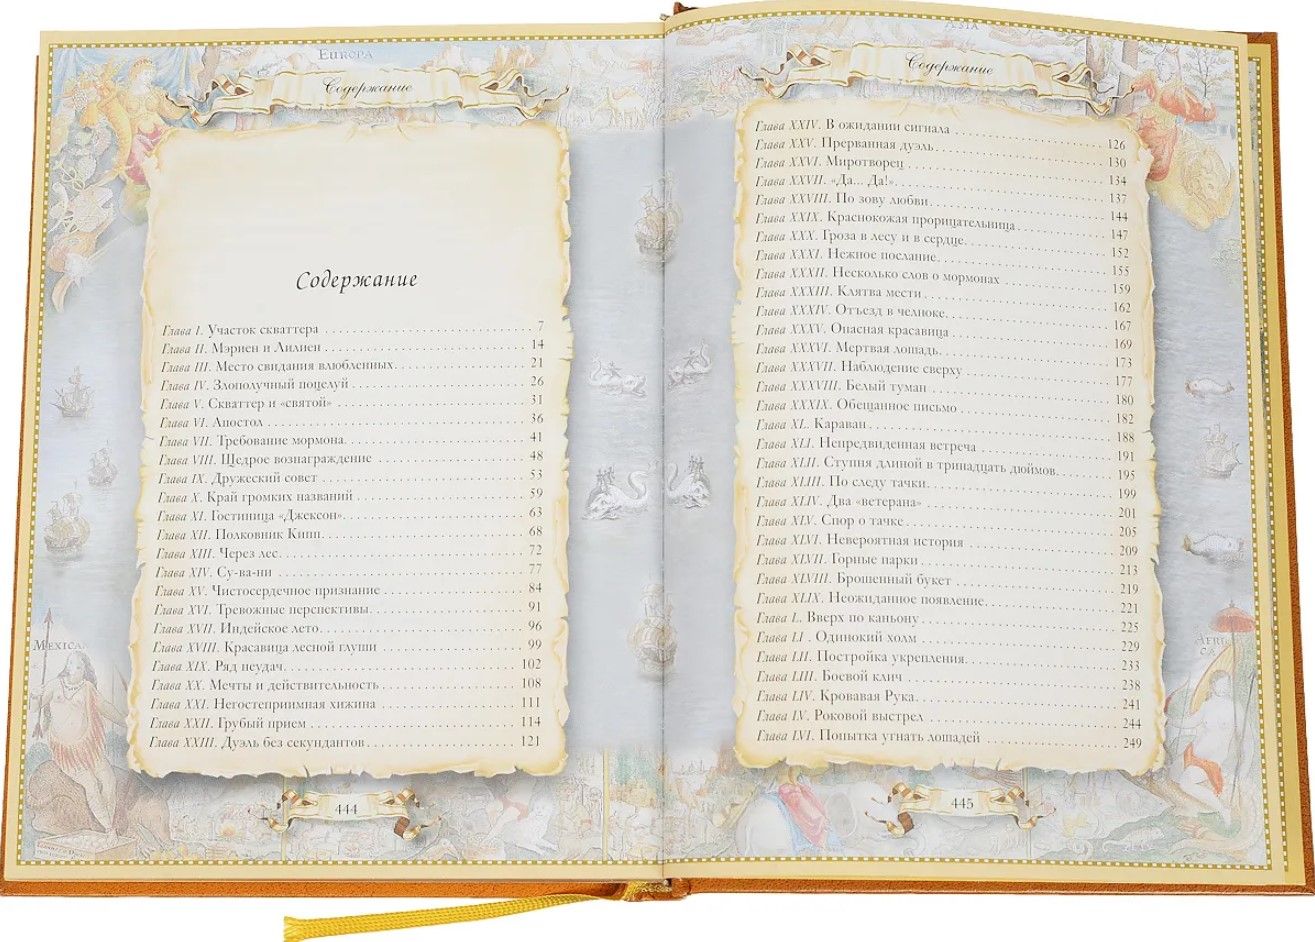 EUROPA
Содержание
Содержание
Глава I. Участок скваттера 7
Глава II. Мэриен и Лилиен 14
Глава III. Место свидания влюбленных 21
Глава IV. Злополучный поцелуй 26
Глава V. Скваттер и «святой» 31
Глава VI. Апостол 36
Глава VII. Требование мормона 41
Глава VIII. Щедрое вознаграждение 48
Глава IX. Дружеский совет 53
Глава X. Край громких названий 59
Глава XI. Гостиница «Джексон» 63
Глава XII. Полковник Кипп 68
Глава XIII. Через лес 72
Глава XIV. Су-ва-ни 77
Глава XV. Чистосердечное признание 84
Глава XVI. Тревожные перспективы 91
Глава XVII. Индейское лето 96
Глава XVIII. Красавица лесной глуши 99
Глава XIX. Ряд неудач 102
Глава XX. Мечты и действительность 108
Глава XXI. Негостеприимная хижина 111
Глава XXII. Грубый прием 114
Глава XXIII. Дуэль без секундантов 121
MEXICAN
444
ASIA
Содержание
Глава XXIV. В ожидании сигнала 126
Глава XXV. Прерванная дуэль 130
Глава XXVI. Миротворец 134
Глава XXVII. «Да... Да!» 137
Глава XXVIII. По зову любви 144
Глава XXIX. Краснокожая прорицательница 147
Глава XXX. Гроза в лесу и в сердце 152
Глава XXXI. Нежное послание 155
Глава XXXII. Несколько слов о мормонах 159
Глава XXXIII. Клятва мести 162
Глава XXXIV. Отъезд в челноке 167
Глава XXXV. Опасная красавица 169
Глава XXXVI. Мертвая лошадь 173
Глава XXXVII. Наблюдение сверху 177
Глава XXXVIII. Белый туман 180
Глава XXXIX. Обещанное письмо 182
Глава XL. Караван 188
Глава XLI. Непредвиденная встреча 191
Глава XLII. Ступня длиной в тринадцать дюймов 195
Глава XLIII. По следу тачки 199
Глава XLIV. Два «ветерана» 201
Глава XLV. Спор о тачке 205
Глава XLVI. Невероятная история 209
Глава XLVII. Горные парки 213
Глава XLVIII. Брошенный букет 219
Глава XLIX. Неожиданное появление 221
Глава L. Вверх по каньону 225
Глава LI. Одинокий холм 229
Глава LII. Постройка укрепления 233
Глава LIII. Боевой клич 238
Глава LIV. Кровавая Рука 241
Глава LV. Роковой выстрел 244
Глава LVI. Попытка угнать лошадей 249
445